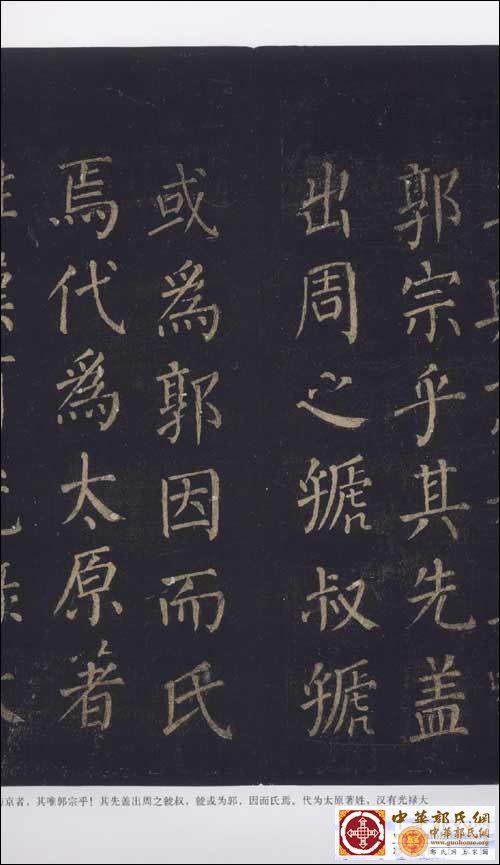 郭宗乎其先盖
出周之虢叔虢
或爲郭因而氏
焉代爲太原著
京者，其唯郭宗乎！其先盖出周之虢叔，虢或为郭，因而氏焉。代为太原著姓，汉有光禄大
中華郭氏网
中華郭氏网
www.guohome.com
郭氏网上家园